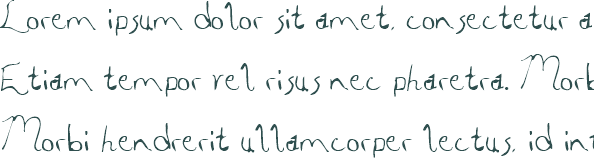 Lorem ipsum dolor sit amet, consectetur a
Etiam tempor vel risus nec pharetra. Morb
Morbi hendrerit ullamcorper lectus, id int